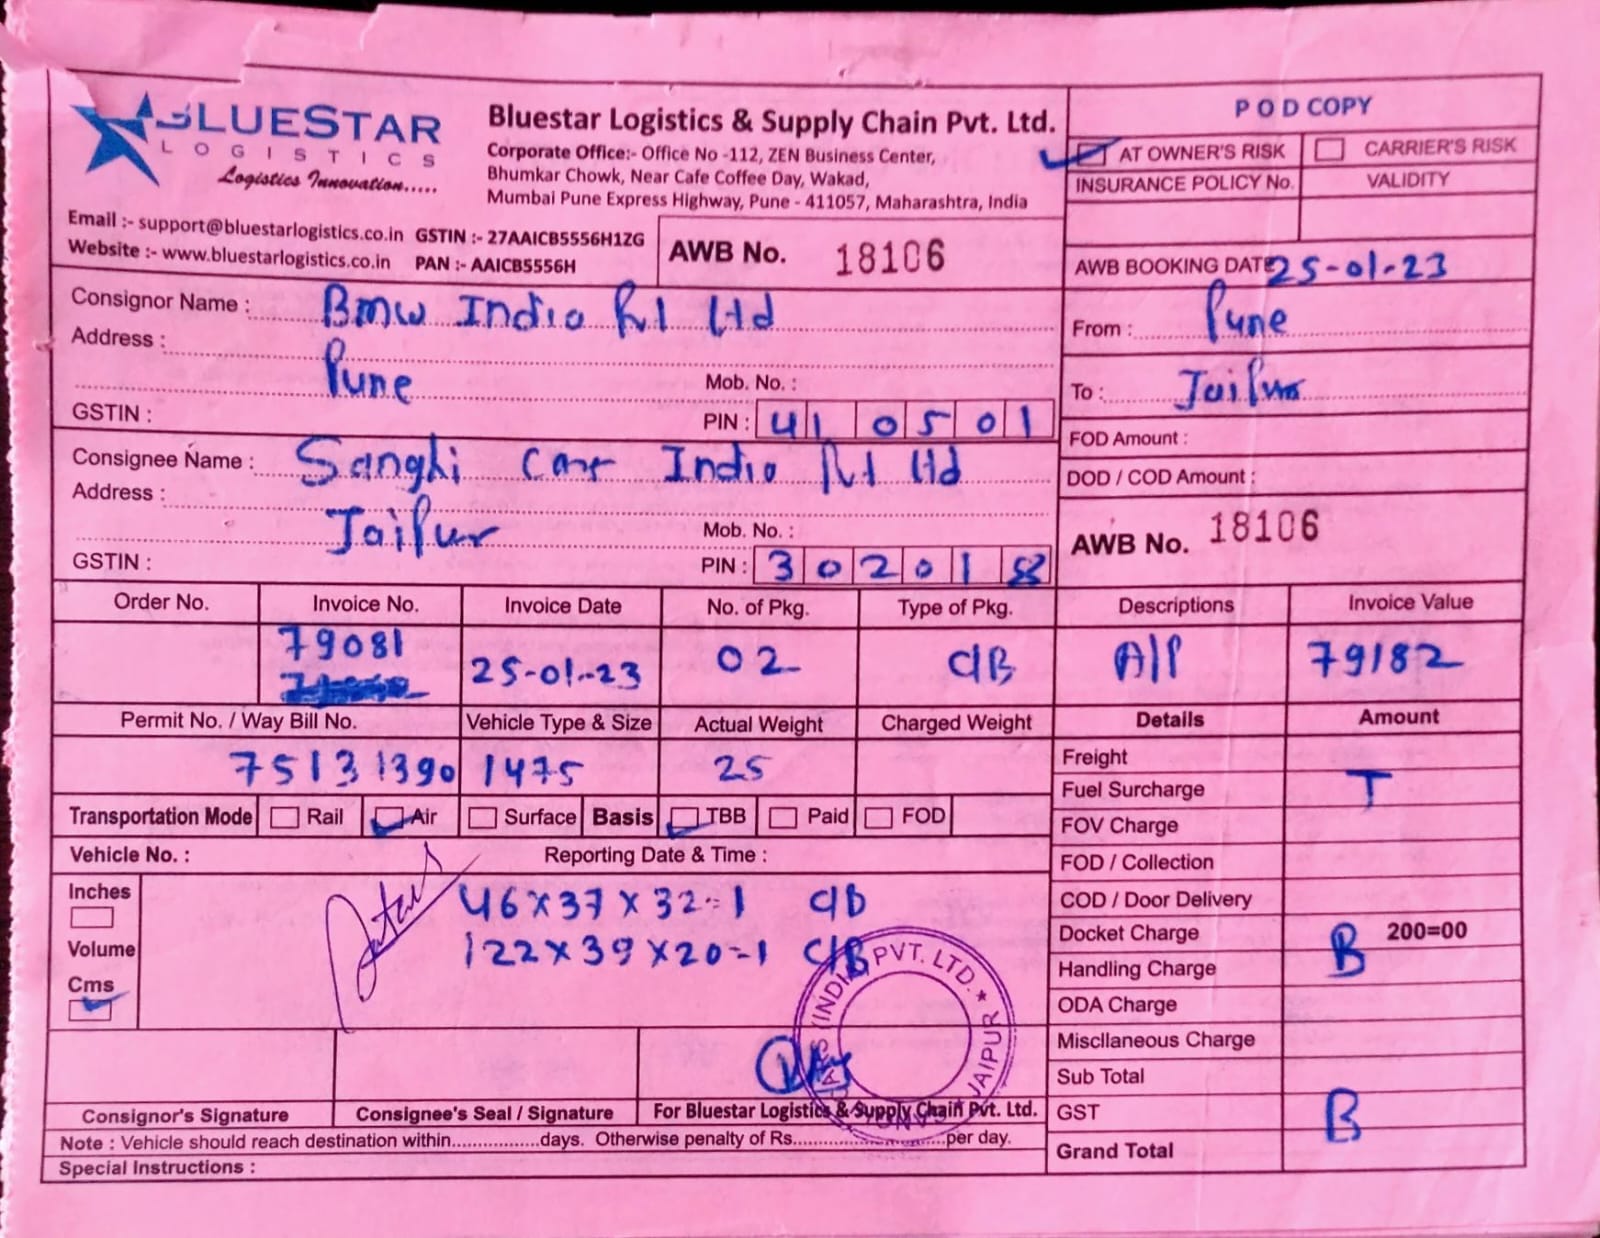 BLUESTAR
LOGISTICS
Logistics Innovation.....
Bluestar Logistics & Supply Chain Pvt. Ltd.
Corporate Office:- Office No -112, ZEN Business Center,
Bhumkar Chowk, Near Cafe Coffee Day, Wakad,
Mumbai Pune Express Highway, Pune - 411057, Maharashtra, India
Email :- support@bluestarlogistics.co.in GSTIN :- 27AAICB5556H1ZG
Website :- www.bluestarlogistics.co.in PAN :- AAICB5556H
AWB No. 18106
POD COPY
AT OWNER'S RISK CARRIER'S RISK
INSURANCE POLICY No. VALIDITY
AWB BOOKING DATE 25-01-23
From : Pune
To : Jaipur
FOD Amount :
DOD / COD Amount :
AWB No. 18106
Consignor Name : BMW India Pvt Ltd
Address :
Pune Mob. No. :
GSTIN : PIN : 410501
Consignee Name : Sanghi Cars India Pvt Ltd
Address :
Jaipur Mob. No. :
GSTIN : PIN : 30201
Order No. Invoice No. Invoice Date No. of Pkg. Type of Pkg. Descriptions Invoice Value
79081 25-01-23 02 C/B A/P 79182
Permit No. / Way Bill No. Vehicle Type & Size Actual Weight Charged Weight Details Amount
75131390 1475 25
Transportation Mode Rail Air Surface Basis TBB Paid FOD
Vehicle No. : Reporting Date & Time :
Inches
Volume
Cms
46x37x32=1 C/B
122x39x20=1 C/B
Freight
Fuel Surcharge T
FOV Charge
FOD / Collection
COD / Door Delivery
Docket Charge 200=00
Handling Charge B
ODA Charge
Miscllaneous Charge
Sub Total
GST B
Grand Total
CARS (INDIA) PVT. LTD. ★ JAIPUR
Consignor's Signature Consignee's Seal / Signature For Bluestar Logistics & Supply Chain Pvt. Ltd.
Note : Vehicle should reach destination within................days. Otherwise penalty of Rs......................per day.
Special Instructions :